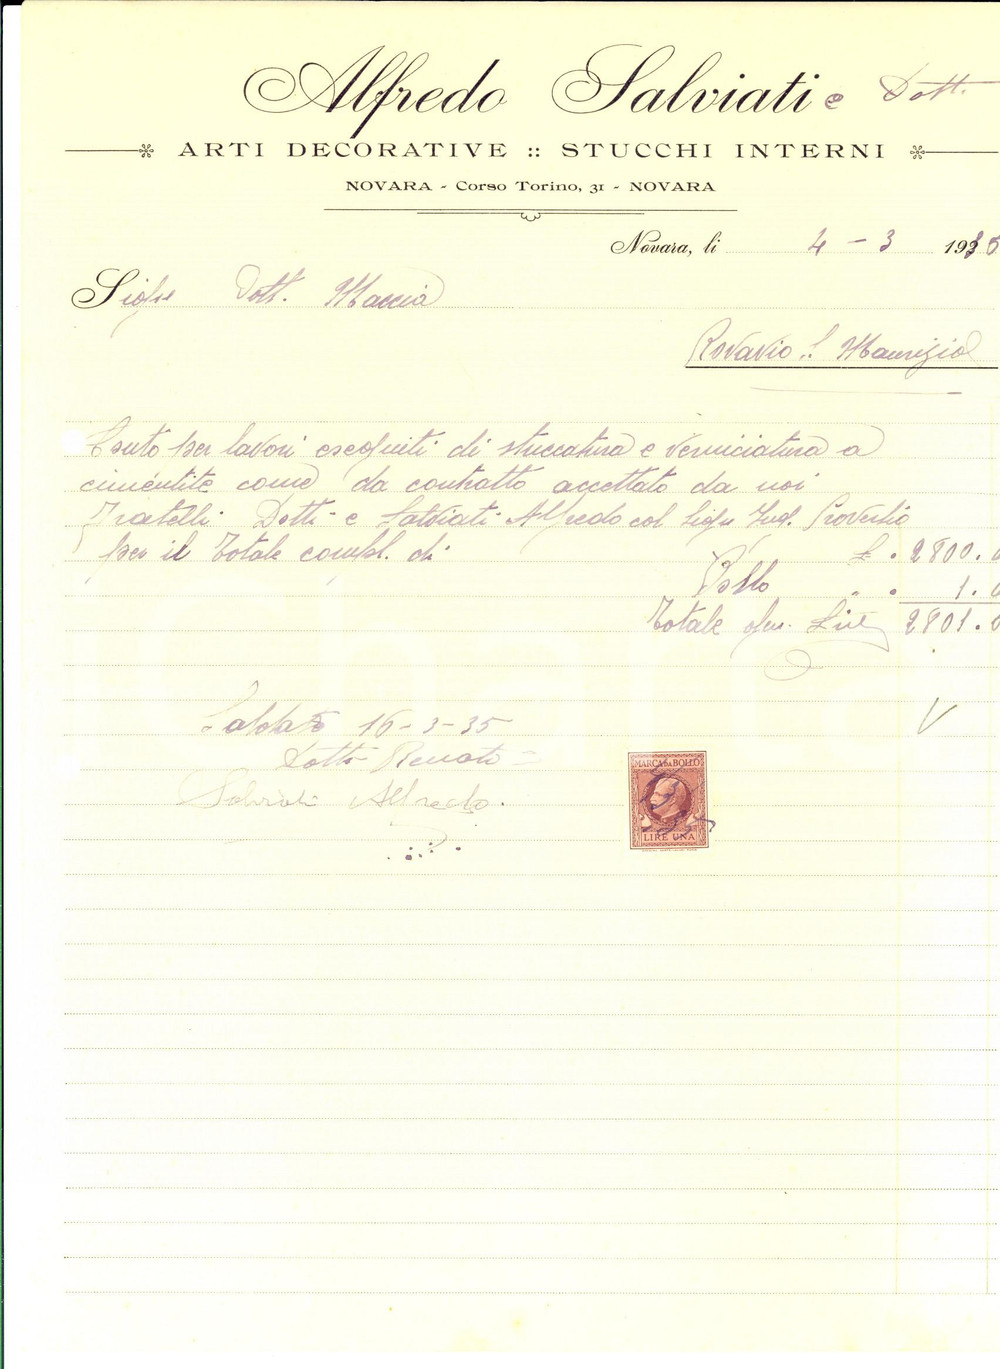 Alfredo Salviati e Dott.
ARTI DECORATIVE :: STUCCHI INTERNI
NOVARA - Corso Torino, 31 - NOVARA
Novara, li 4 - 3 1935
Sigr Dott. Maccia
Rovavio S. Maurizio
Conto per lavori eseguiti di stuccatura e verniciatura a
cimentite come da contratto accettato da noi
Fratelli Dotti e Salviati Alfredo col Sigr Ing. Proverbio
per il totale compl. di £. 2800.0
Bollo " . 1.0
Totale Lire 2801.0
Saldato 16-3-35
Dotti Renato
Salviati Alfredo.
MARCA DA BOLLO
LIRE UNA